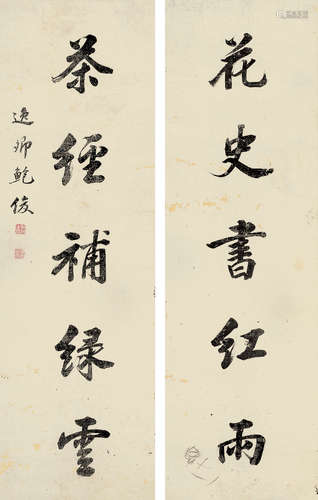 花史書紅雨
茶經補綠雲
逸卿鮑俊